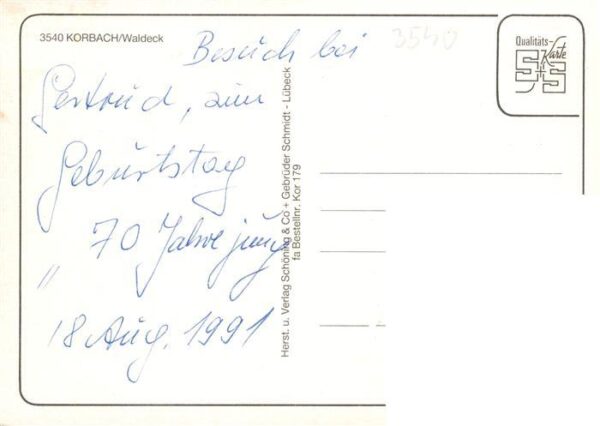 3540 KORBACH/Waldeck
Besuch bei
Gertrud, zum
Geburtstag
70 Jahre jung
"
18 Aug. 1991
3540
Qualitäts-
Karte
S+S
Herst. u. Verlag Schöning & Co + Gebrüder Schmidt - Lübeck
fa Bestellnr. Kor 179